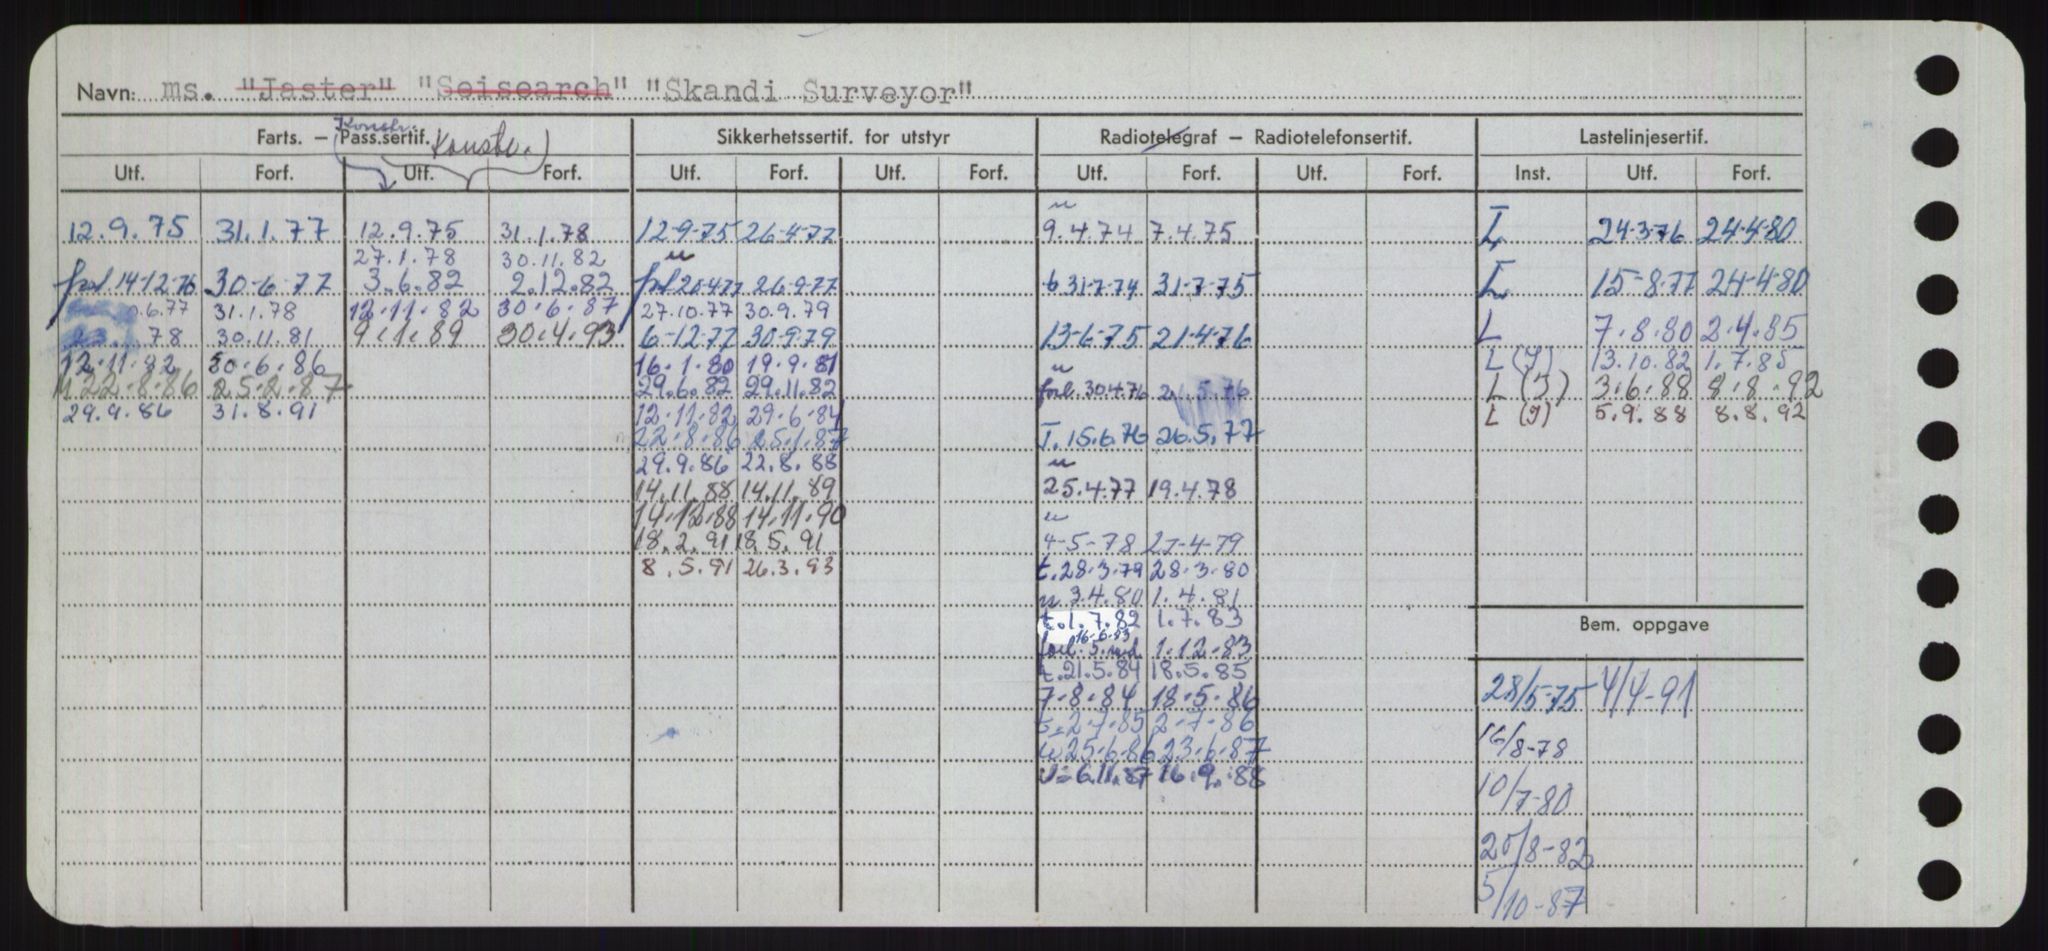 Navn: ms. "Jaster" "Seisearch" "Skandi Surveyor"
Farts. — Pass.sertif. Konstr. Konstr.) Sikkerhetssertif. for utstyr Radiotelegraf — Radiotelefonsertif. Lastelinjesertif.
Utf. Forf. Utf. Forf. Utf. Forf. Utf. Forf. Utf. Forf. Utf. Forf. Inst. Utf. Forf.
12.9.75 31.1.77 12.9.75 31.1.78 12-9-75 26-4-77 9.4.74 7.4.75 L 24-3-76 24-4-80
27.1.78 30.11.82
14-12-76 30-6-77 3.6.82 2.12.82 20-4-77 26-9-77 t 31-7-74 31-7-75 L 15-8-77 24-4-80
.6.77 31.1.78 12.11.82 30.6.87 27.10.77 30.9.79
78 30.11.81 9.1.89 30.4.93 6-12-77 30-9-79 13-6-75 21-4-76 L 7.8.80 2.4.85
12.11.82 30.6.86 16.1.80 19.9.81 L (J) 13.10.82 1.7.85
22.8.86 25.2.87 29.6.82 29.11.82 forl. 30.4.76 .5.76 L (J) 3.6.88 8.8.92
29.9.86 31.8.91 12.11.82 29.6.84 L (J) 5.9.88 8.8.92
22.8.86 25.1.87 T. 15.6.76 26.5.77
29.9.86 22.8.88
14.11.88 14.11.89 25.4.77 19.4.78
14.12.88 14.11.90
18.2.91 18.5.91 4-5-78 27-4-79
8.5.91 26.3.93 t. 28.3.79 28.3.80
u 3.4.80 1.4.81
t. 1.7.82 1.7.83
16-6-83
forl. 5. md. 1.12.83
t. 21.5.84 18.5.85
7.8.84 18.5.86
2-7-85 2-7-86
u 25.6.86 23.6.87
6.11.87 16.9.88
Bem. oppgave
28/5-75 4/4-91
16/8-78
10/7-80
25/8-82
5/10-87